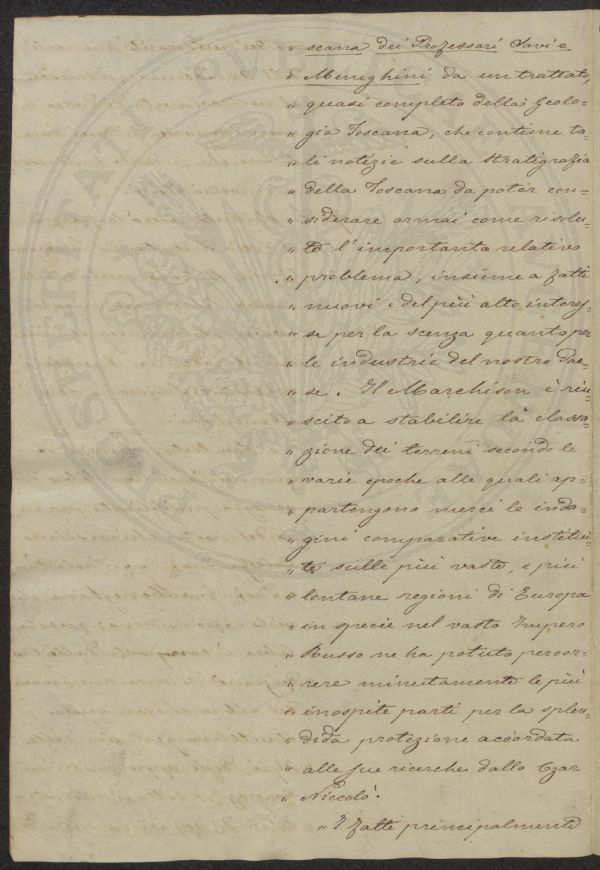 " scana dei Professori Savi e
" Meneghini da un trattato,
" quasi completo della Geolo=
" gia Toscana, che contiene ta=
" li notizie sulla Stratigrafia
" della Toscana da poter con=
" siderare ormai come risolu=
" to l'importante relativo
" problema, insieme a fatti
" nuovi e del più alto interes=
" se per la scenza quanto per
" le industrie del nostro Pae=
" se. Il Marchison è riu=
" scito a stabilire la classa=
" zione dei terreni secondo le
" varie epoche alle quali ap=
" partengono mercè le inda=
" gini comparative institui=
" te sulle più vaste, e più
" lontane regioni di Europa
" in specie nel vasto Impero
" Russo ne ha potuto percor=
" rere minutamente le più
" inospite parti per la splen=
" dida protezione accordata
" alle sue ricerche dallo Czar
" Niccolò.
" I fatti principalmente